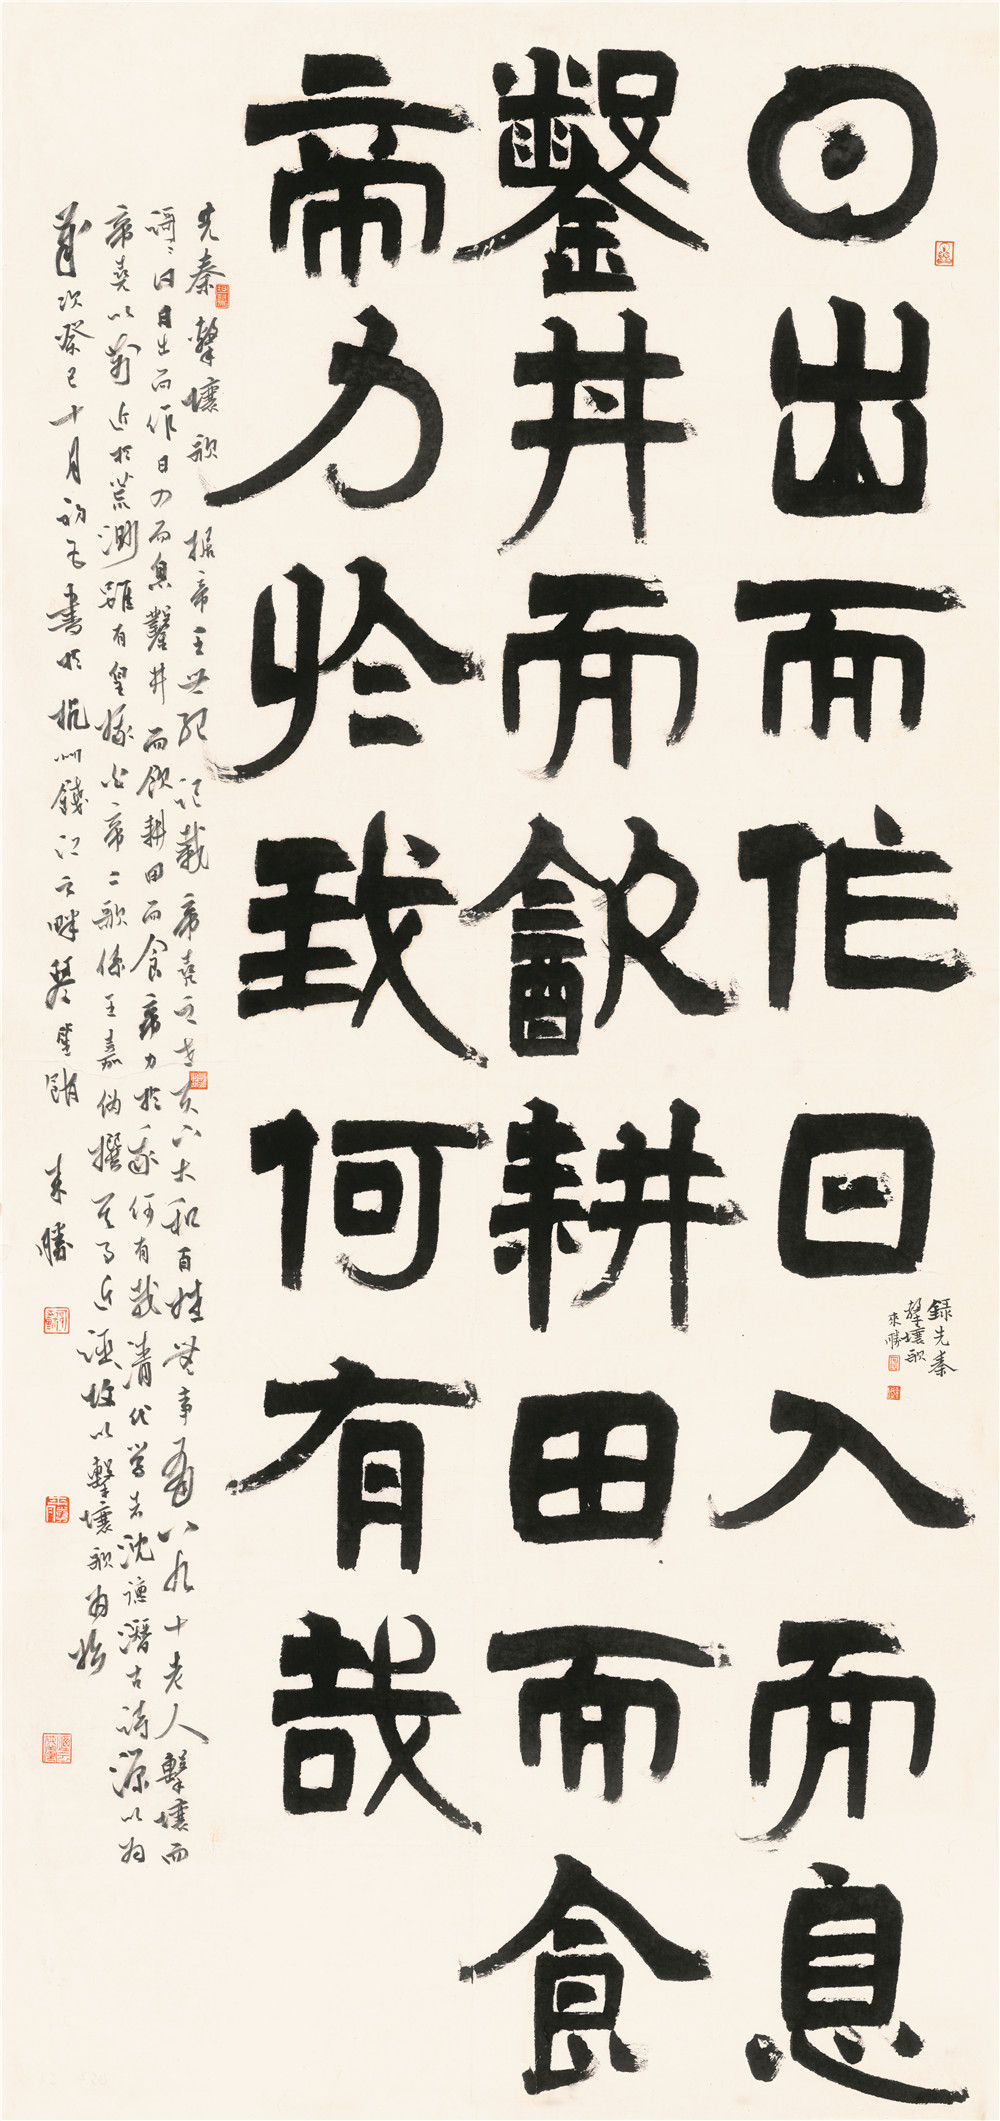 日出而作日入而息
鑿井而飲耕田而食
帝力於我何有哉
錄先秦
擊壤歌
來勝
先秦擊壤歌 據帝王世紀記載帝堯之世天下太和百姓無事有八九十老人擊壤而
歌歌曰日出而作日入而息鑿井而飲耕田而食帝力於我何有哉清代學者沈德潛古詩源以為
帝堯以前近於荒渺雖有皇娥白帝二歌係王嘉偽撰其事近誣故以擊壤歌為始
歲次癸巳十月初五書於杭州錢江之畔 來勝